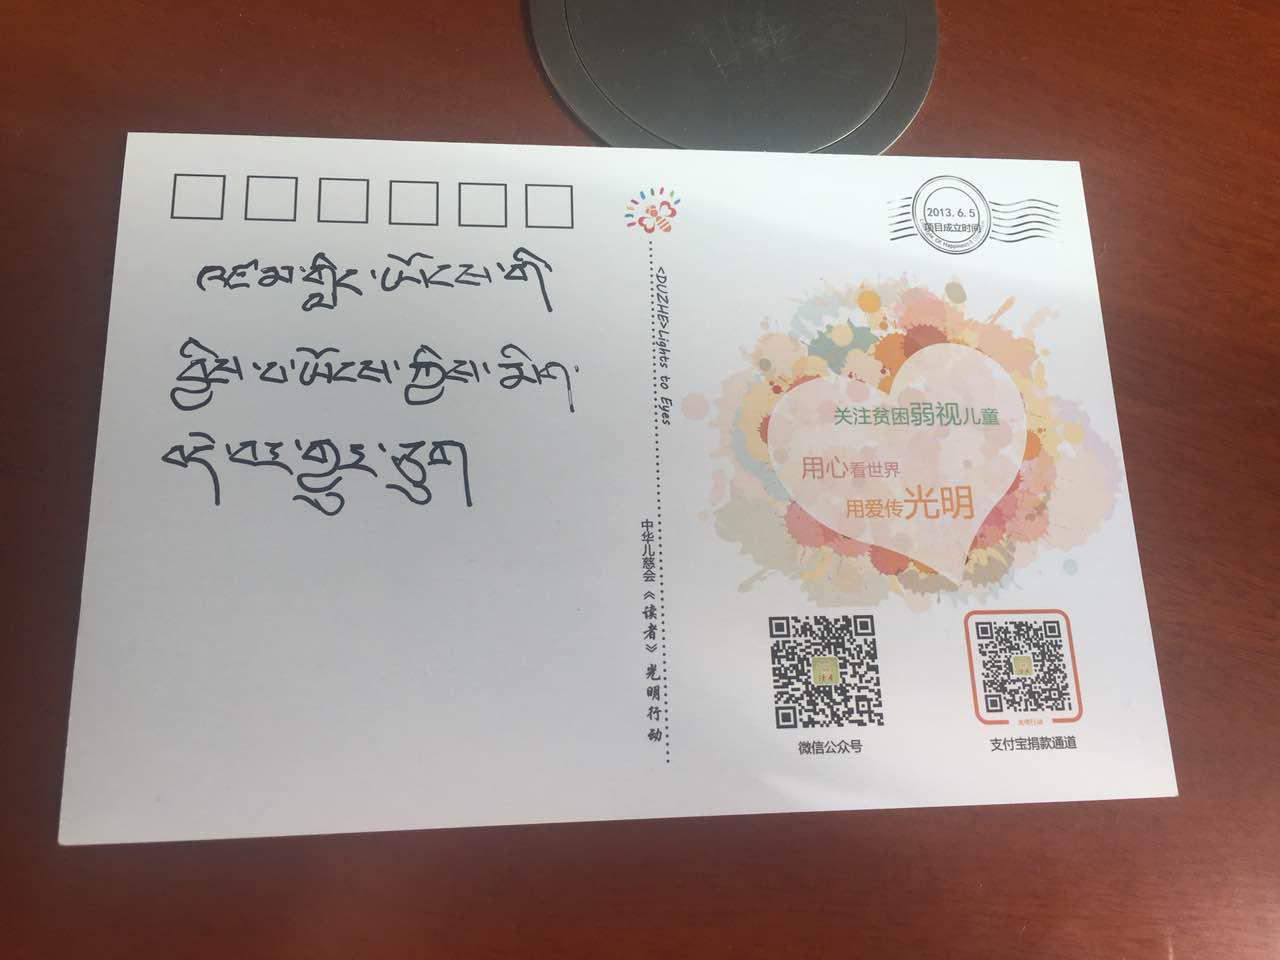 འཛམ་གླིང་ཡོངས་གི
བྱིས་པ་ཡོངས་ཀྱིས་མིག
དེ་བར་གྱུར་
<DUZHE>Lights to Eyes
中华儿慈会《读者》光明行动
2013.6.5
项目成立时间
关注贫困弱视儿童
用心看世界
用爱传光明
微信公众号
光明行动
支付宝捐款通道